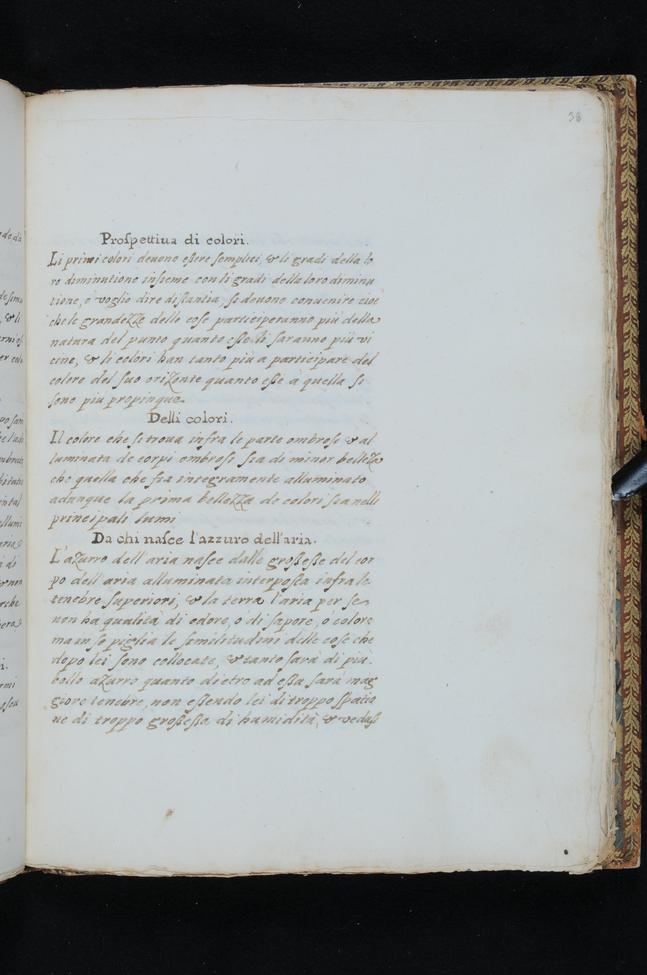 38
Proſpettiua di colori.
Li primi colori deuono eſſere ſemplici, & li gradi della lo
ro diminutione inſieme con li gradi della loro diminu
tione, o voglio dire diſtantia, ſi deuono conuenire cioe
che le grandezze delle coſe participeranno più della
natura del punto quanto eſſe li ſaranno più vi
cine, & li colori han tanto più a participare del
colore del ſuo orizonte quanto eſſe à quella ſi
ſono più propinque.
Delli colori.
Il colore che ſi troua infra le parte ombroſe & al
luminata de corpi ombroſi ſia di minor bellezza
che quella che ſia integramente alluminato
adunque la prima bellezza de colori ſia nelli
principali lumi
Da chi naſce l'azzuro dell'aria.
L'azurro dell'aria naſce dalle groſſeſſe del cor
po dell'aria alluminata interpoſta infra le
tenebre ſuperiori, & la terra l'aria per ſe
non ha qualità di odore, o di ſapore, o colore
ma in ſe piglia le ſimilitudini delle coſe che
dopo lei ſono collocate, & tanto ſarà di più
bello azurro quanto dietro ad eſſa ſarà mag
giore tenebre, non eſſendo lei di troppo ſpatio
ne di troppo groſſeſſa di humidità, & vedaſſ